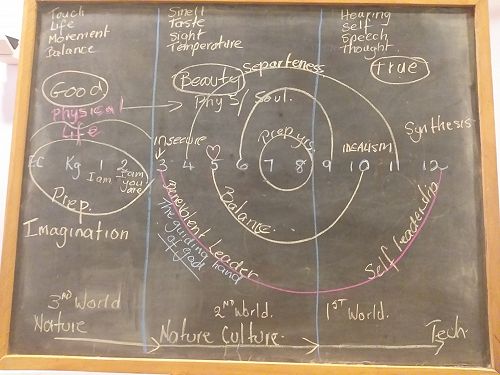 Touch
Life
Movement
Balance
Smell
Taste
Sight
Temperature
Hearing
Self
Speech
Thought.
Good
Beauty
Separateness
True
Physical
Life
Phys/ Soul.
Synthesis
insecure
Prepubs.
IDEALISM
EC Kg 1 2 3 4 5 6 7 8 9 10 11 12
I am
I am
you
are
Prep.
Imagination
Balance
Benevolent Leader
The guiding hand
of god
Self leadership
3RD World
2ND World.
1ST World.
Nature
Nature Culture
Tech.